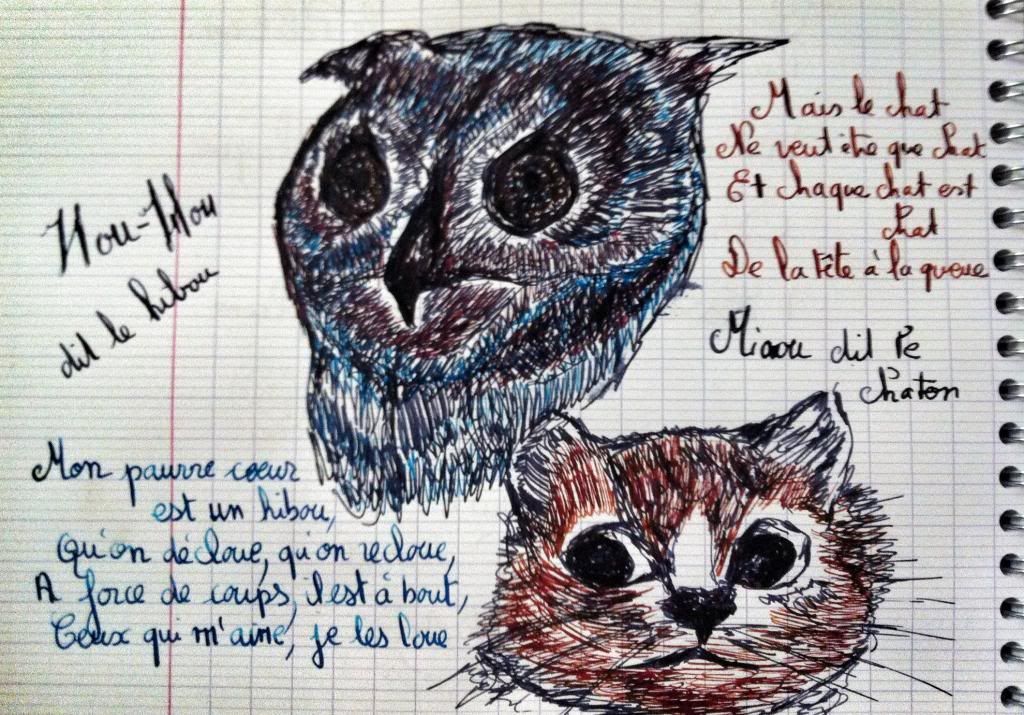 Hou-Hou
dit le hibou
Mon pauvre coeur
est un hibou,
Qu'on décloue, qu'on recloue,
A force de coups, il est à bout,
Ceux qui m'aime, je les loue
Mais le chat
Ne veut être que chat
Et chaque chat est
chat
De la tête à la queue
Miaou dit le
chaton